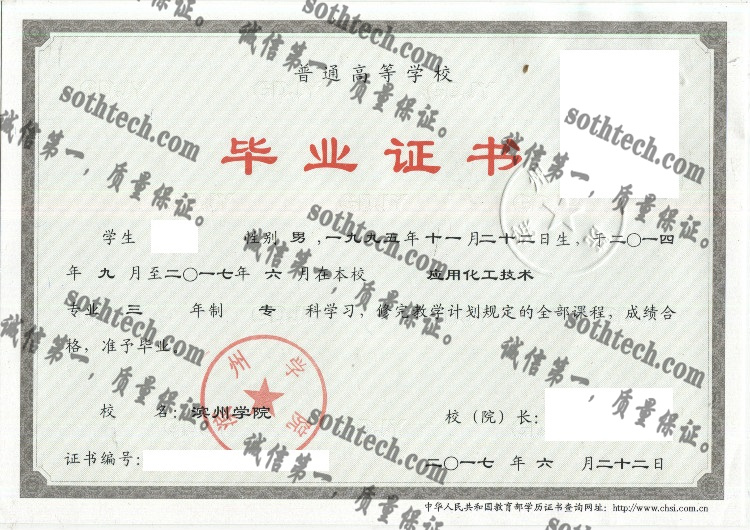 普通高等学校
毕业证书
学生 性别 男 , 一九九五年 十一月二十二日生, 于二〇一四
年 九 月至二〇一七年 六 月在本校 应用化工技术
专业 三 年制 专 科学习, 修完教学计划规定的全部课程, 成绩合
格, 准予毕业。
滨州学院
校 名: 滨州学院 校（院）长:
证书编号: 二〇一七 年 六 月二十二日
中华人民共和国教育部学历证书查询网址: http://www.chsi.com.cn
sothtech.com
诚信第一，质量保证。
sothtech.com
诚信第一，质量保证。
sothtech.com
诚信第一，质量保证。
sothtech.com
诚信第一，质量保证。
sothtech.com
诚信第一，质量保证。
sothtech.com
诚信第一，质量保证。
sothtech.com
诚信第一，质量保证。